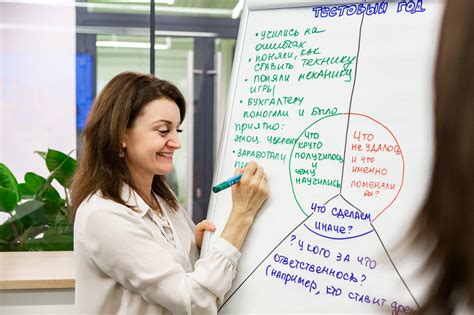 ТЕСТОВЫЙ ГОД
• УЧИЛИСЬ НА
ОШИБКАХ
• ПОНЯЛИ, КАК
СТАВИТЬ ТЕХНИКУ
• ПОНЯЛИ МЕХАНИКУ
ИГРЫ
• БУХГАЛТЕРУ
ПОМОГАЛИ И БЫЛО
ПРИЯТНО:
ЭМОЦ.
• ЗАРАБОТАЛИ
ЧТО
КРУТО
ПОЛУЧИЛОСЬ И
ЧЕМУ
НАУЧИЛИСЬ
ЧТО
НЕ УДАЛОСЬ
И ЧТО
ИМЕННО
ПОМЕНЯЛИ БЫ
ЧТО СДЕЛАЕМ
ИНАЧЕ?
? У КОГО ЗА ЧТО
ОТВЕТСТВЕННОСТЬ?
(НАПРИМЕР, КТО СТАВИТ